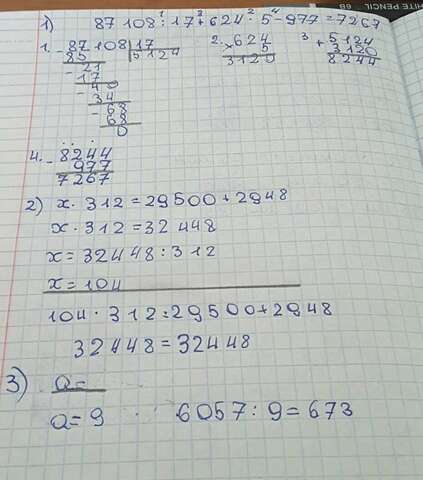 HITE PENCIL 6B
1) 87 108 : 17 + 624 · 5 - 977 = 7267
1. - 87 108 | 17
85 5124
- 21
17
- 40
34
- 68
68
0
2. × 624
5
3120
3 + 5124
3120
8244
4. - 8244
977
7267
2) x · 312 = 29500 + 2948
x · 312 = 32 448
x = 32448 : 312
x = 104
104 · 312 = 29500 + 2948
32448 = 32448
3) a =
a = 9 6057 : 9 = 673